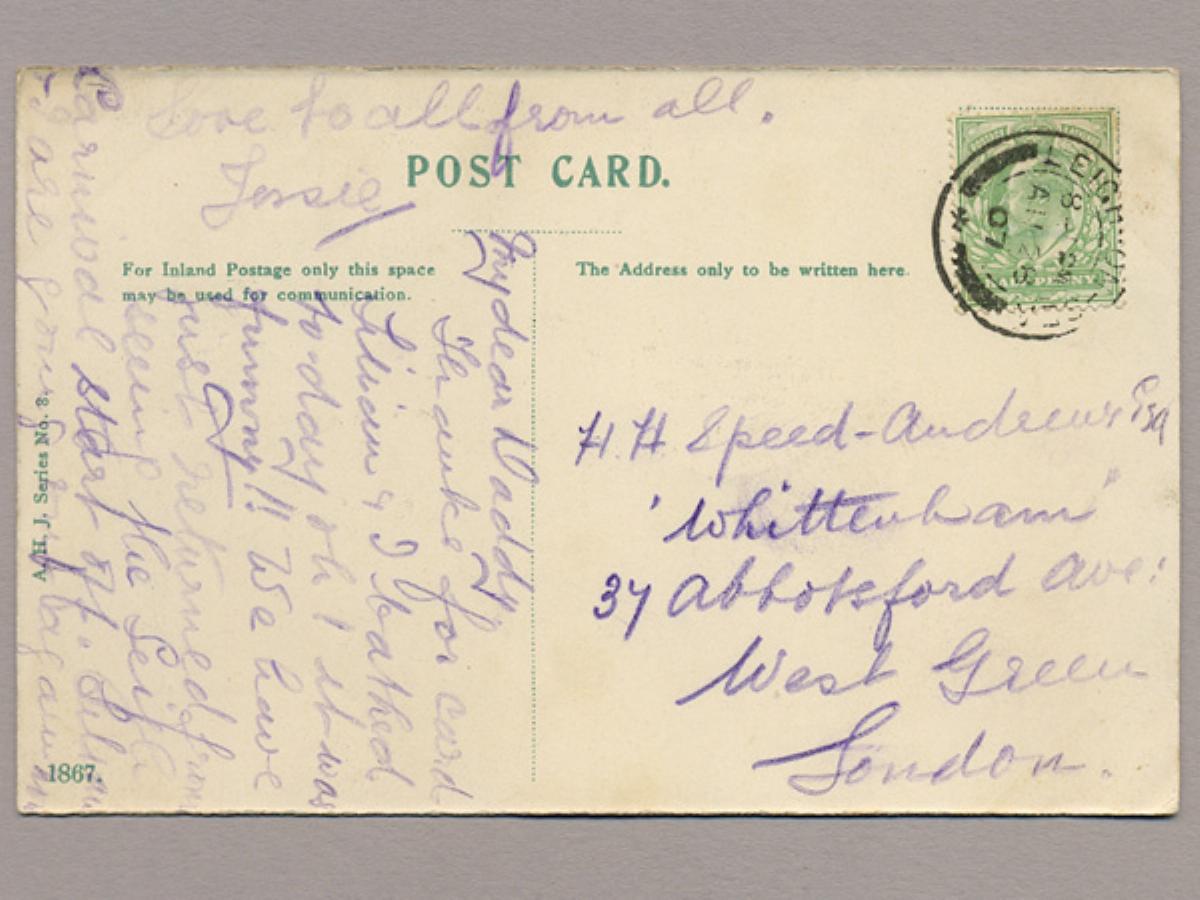 Love to all from all.
Jessie
POST CARD.
For Inland Postage only this space
may be used for communication.
The Address only to be written here.
My dear Daddy
Thanks for card
Lilian & I bathed
to day oh! it was
funny!! We have
just returned from
seeing the Leigh
Carnival start off.
& are going
H H Speed-Andrews Esq
'Whittenham'
37 Abbotsford Ave:
West Green
London.
A.H.J. Series No. 8.
1867.
LEIGH-ON-SEA
8
AU 28
07
PENNY